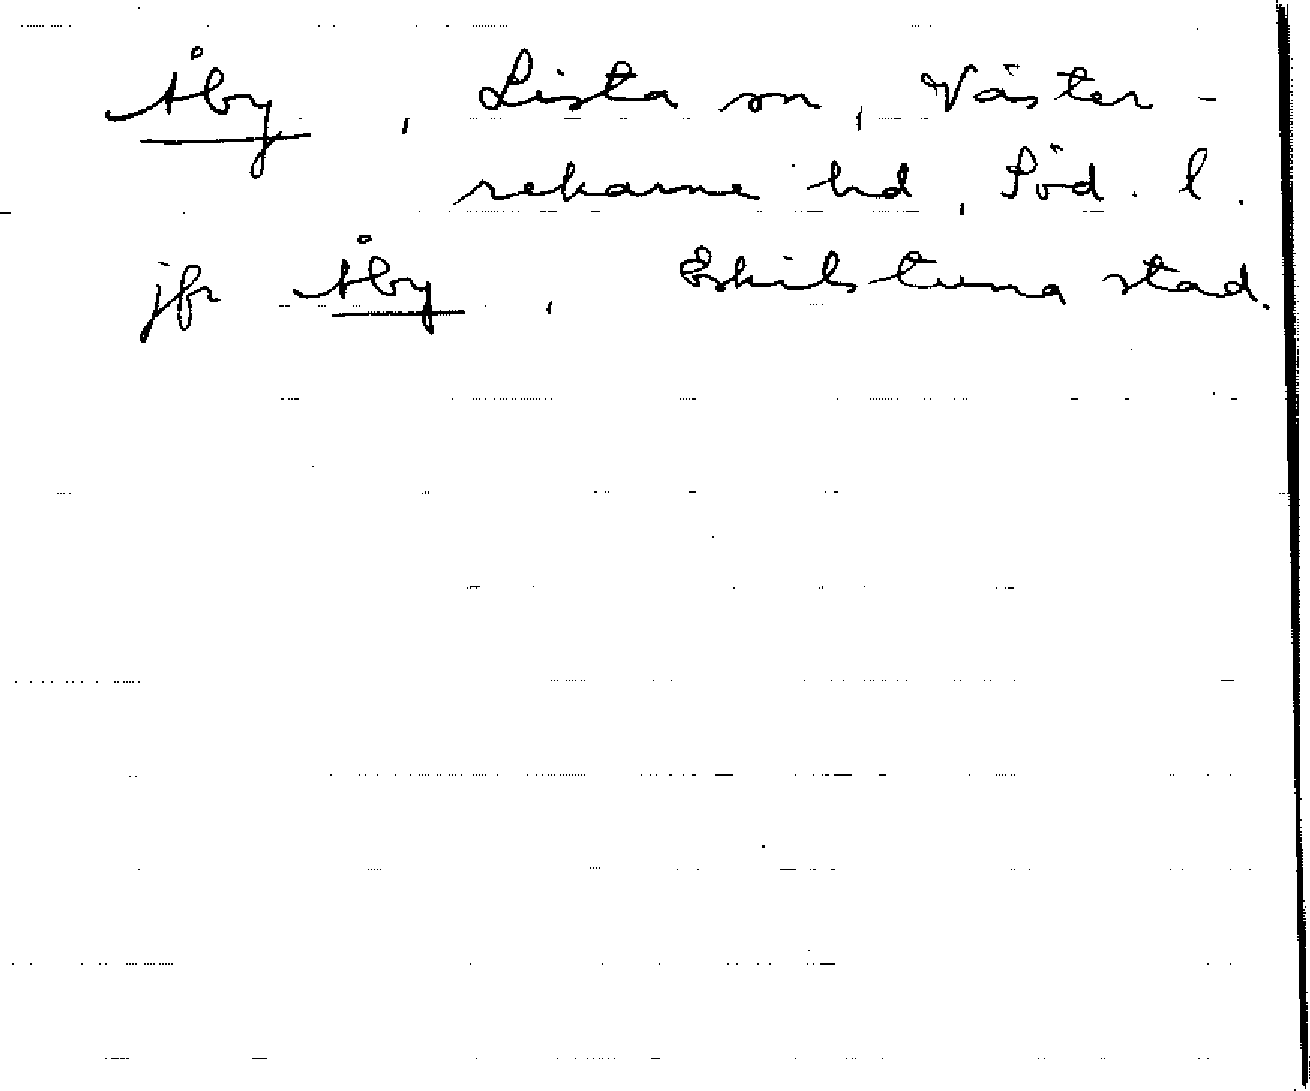 Åby, Lista sn, Väster-
rekarne hd, Söd. l.
jfr Åby, Eskilstuna stad.